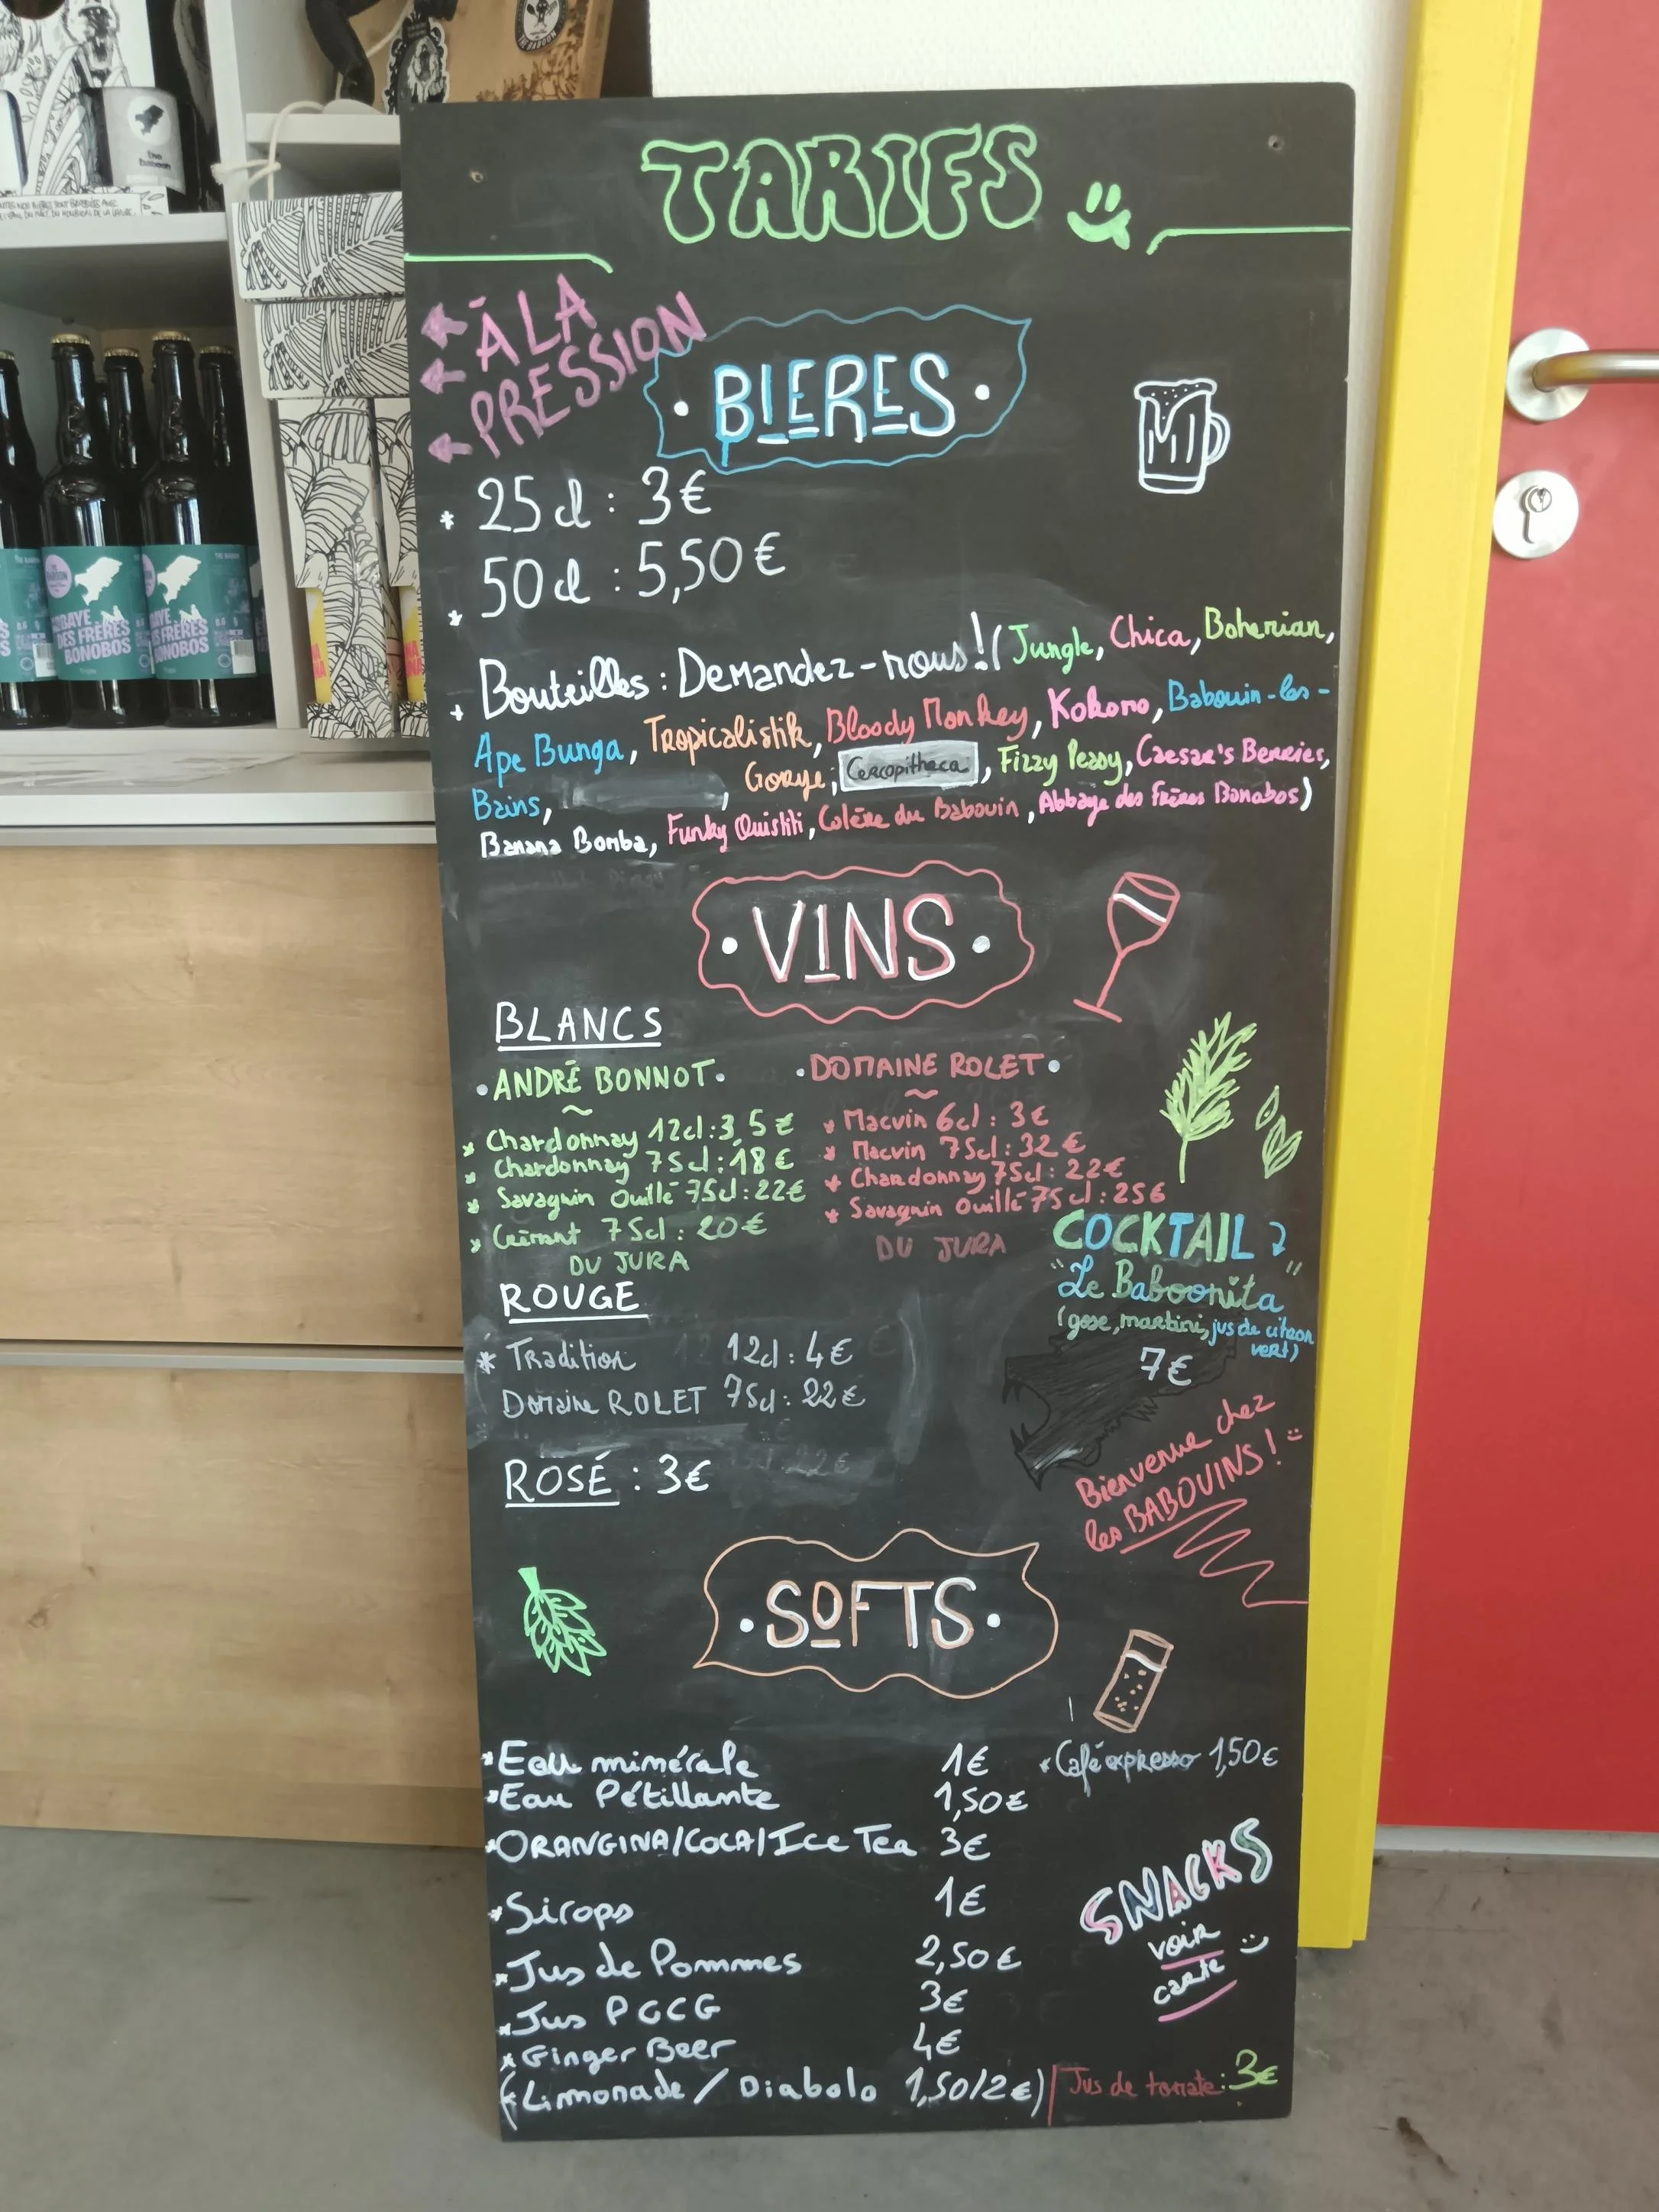 TARIFS
À LA
PRESSION
BIERES
* 25cl : 3€
* 50cl : 5,50€
* Bouteilles : Demandez-nous ! (Jungle, Chica, Bohemian,
Ape Bunga, Tropicalistik, Bloody Monkey, Kokomo, Babouin-les-
Bains, Gorye, Cercopitheca, Fizzy Peasy, Caesar's Berries,
Banana Bomba, Funky Ouistiti, Colère du Babouin, Abbaye des Frères Bonobos)
VINS
BLANCS
ANDRÉ BONNOT
* Chardonnay 12cl : 3,5€
* Chardonnay 75cl : 18€
* Savagnin Ouillé 75cl : 22€
* Crémant 75cl : 20€
DU JURA
DOMAINE ROLET
* Macvin 6cl : 3€
* Macvin 75cl : 32€
* Chardonnay 75cl : 22€
* Savagnin Ouillé 75cl : 25€
DU JURA
COCKTAIL
"Le Baboonita"
(gose, martini, jus de citron
vert)
7€
ROUGE
* Tradition 12cl : 4€
Domaine ROLET 75cl : 22€
ROSÉ : 3€
Bienvenue chez
les BABOUINS !
SOFTS
* Eau minérale 1€
* Eau Pétillante 1,50€
* ORANGINA/COCA/Ice Tea 3€
* Sirops 1€
* Jus de Pommes 2,50€
* Jus PGCG 3€
* Ginger Beer 4€
(* Limonade / Diabolo 1,50/2€)
* Café expresso 1,50€
SNACKS
voir
carte
Jus de tomate : 3€
THE BABOON
The Baboon
ABBAYE
DES FRÈRES
BONOBOS